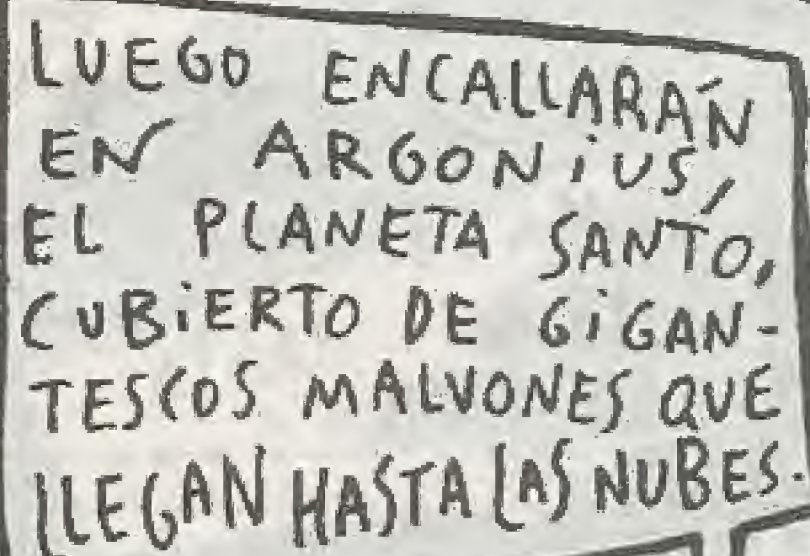 LUEGO ENCALLARÁN
EN ARGONiUS,
EL PLANETA SANTO,
CUBiERTO DE GiGAN-
TESCOS MALVONES QUE
LLEGAN HASTA LAS NUBES.